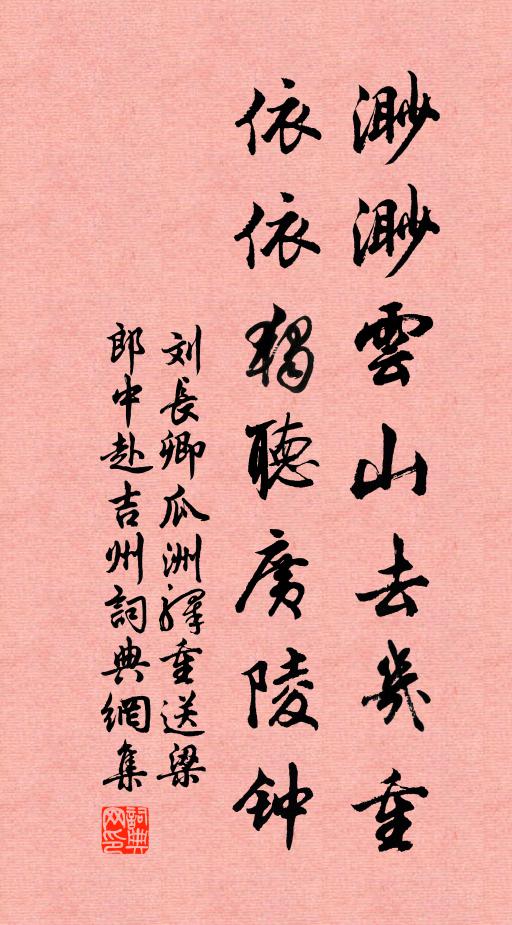 渺渺雲山去幾重
依依獨聽廣陵钟
刘長卿瓜洲驛重送梁
郎中赴吉州詞典網集
詞典
网印